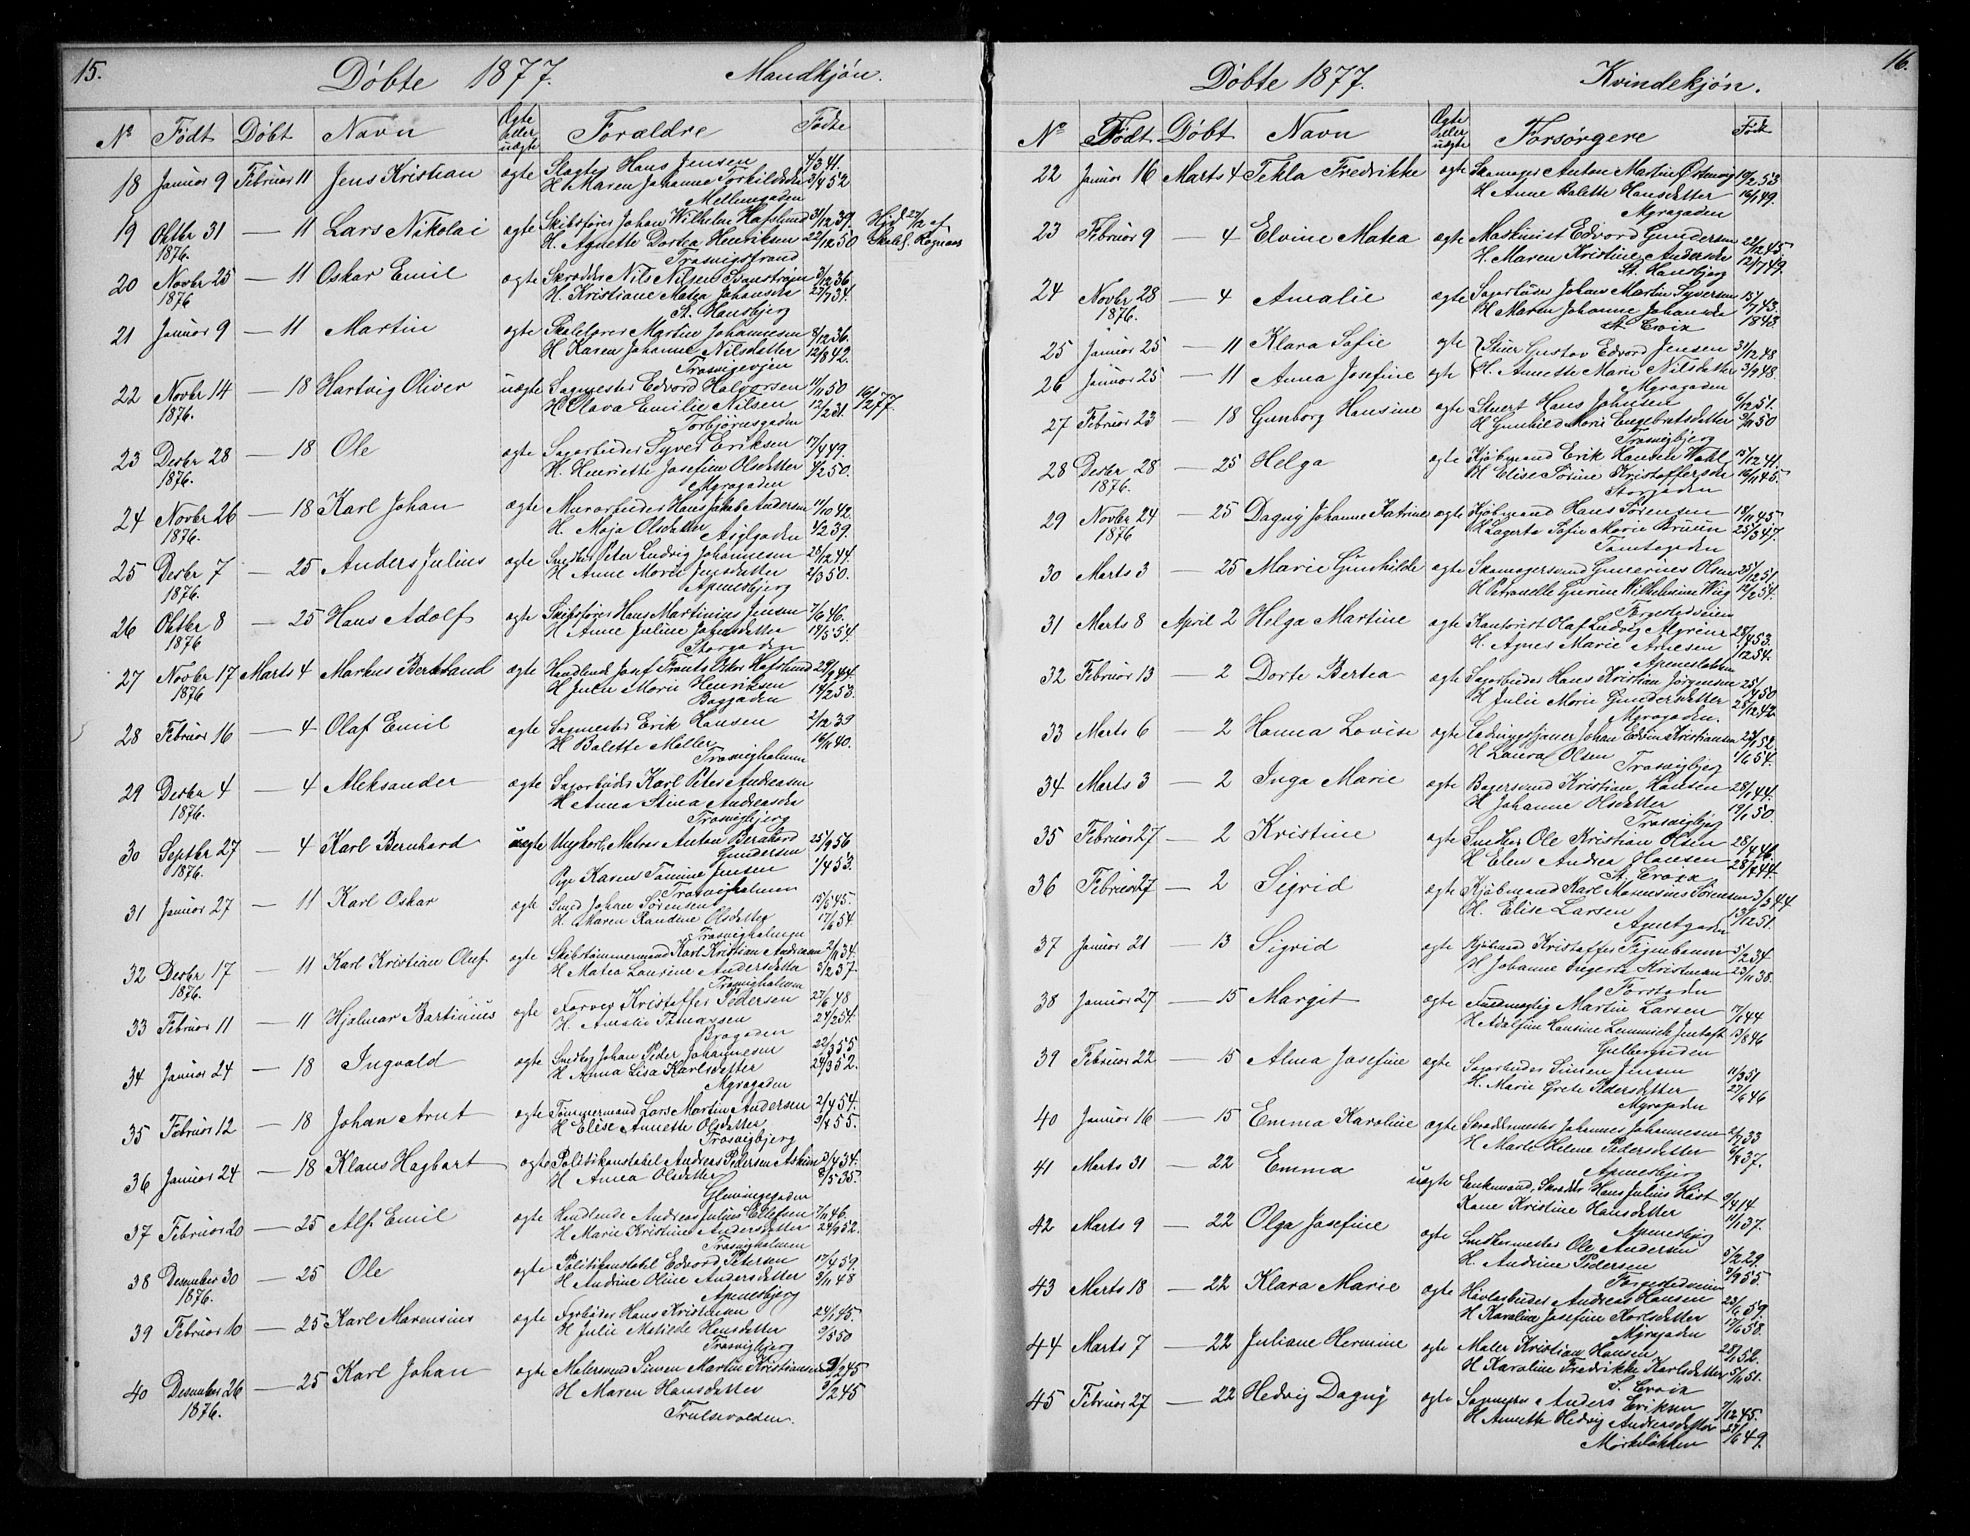 15.
Døbte 1877. Mandkjøn.
No Født Døbt Navn Ægte eller uægte Forældre Fødte
18 Januar 9 Februar 11 Jens Kristian ægte Slagter Hans Jensen 4/3 41.
H. Maren Johanne Torkildsdtr 2/4 52
Mellemgaden
19 Oktbr 31 — 11 Lars Nikolai ægte Skibsfører Johan Wilhelm Hafslund 31/12 39.
1876. H. Agnette Dortea Henriksen 22/12 50
Trosvigstrand
20 Novbr 25 — 11 Oskar Emil ægte Skrædder Nils Nilsen
1876 H. Kristiane Matea Johansdtr 27/7 34.
St. Hansbjerg
21 Januar 9 — 11 Martin ægte Martin Johannesen 8/12 36.
H Karen Johanne Nilsdatter 12/8 42.
22 Novbr 14 — 18 Hartvig Oliver uægte Sagmester Edvard Halvorsen 11/11 50
1876. H Olava Emilie Nilsen 12/2 31.
Torbjørnsgaden
23 Desbr 28 — 18 Ole ægte Sagarbeider Syver Eriksen 17/4 49.
1876. H. Henriette Josefine Olsdatter 4/2 50.
Myragaden
24 Novbr 26 — 18 Karl Johan ægte Murarbeider Hans Jakob Andersen 11/10 42.
1876. H. Maja Olsdatter 4/2 39.
25 Desbr 7 — 25 Anders Julius ægte Snedker Peter Ludvig Johannesen 28/12 44.
1876. H Anne Marie Jensdatter 2/3 50.
Apenesbjerg
26 Oktbr 8 — 25 Hans Adolf ægte Skibsfører Hans Martinius Jensen 7/6 46.
1876 H Anne Juline Johansdatter 19/5 54.
Storgaden
27 Novbr 17 Marts 4 Markus Bertrand ægte Handlende Josef Frants Oskar Hafslund 29/6 44.
1876 H Julie Marie Henriksen 14/2 53.
Baggaden
28 Februar 16 — 4 Olaf Emil ægte Sagmester Erik Hansen 2/12 39
H Balette Møller 16/11 40.
Trosvigholmen
29 Desbr 4 — 4 Aleksander ægte Sagarbeider Karl Peter Andreasen
1876. H Anna Stina Andreasdtr
Trosvigbjerg
30 Septbr 27 — 4 Karl Bernhard uægte Ungkarl, Matros Anton Bernhard 25/9 56
1876. Gundersen
Pige Karen Tomine Jensen 1/4 53.
Trosvigholmen
31 Januar 27 — 11 Karl Oskar ægte Smed Johan Sørensen 13/6 45.
H. Maren Randine Olsdatter 17/6 54.
Trosvigholmen
32 Desbr 17 — 11 Karl Kristian Oluf ægte Skibstømmermand Karl Kristian Andreasen 2/11 34.
1876. H Matea Laurine Andersdatter 3/2 37.
Trosvigholmen
33 Februar 11 — 11 Hjalmar Bartinius ægte Farver Kristoffer Pedersen 27/6 48
H. Amalie Tomassen 24/2 54.
34 Januar 24 — 18 Ingvald ægte Johan Peder Johannesen 22/3 55
H Anna Lisa Karlsdatter 24/3 52.
Myragaden
35 Februar 12 — 18 Johan Arnt ægte Tømmermand Lars Martin Andersen 2/4 54.
H Elise Annette Olsdatter 9/4 55.
Trosvigbjerg
36 Januar 24 — 18 Klaus Hagbart ægte Politikonstabel Andreas Pedersen Askim 3/4 34.
H Anna Olsdatter 8/5 35.
Glemmingegaden
37 Februar 20 — 25 Alf Emil ægte Handlende Andreas Julius Ellefsen 7/11 46.
H Marie Kristine Andersdatter 24/9 52.
Trosvigholmen
38 Desember 30 — 25 Ole ægte Politikonstabel Edvard Petersen 17/4 59.
1876. H Andrine Oline Andersdatter 3/11 48
Apenesbjerg
39 Februar 10 — 25 Karl Marensius ægte Fyrbøder Hans Kristensen 24/1 45.
H Julie Matilde Hansdatter 9/5 50
Trosvigbjerg
40 Desember 26 — 25 Karl Johan ægte Malersvend Simen Martin Kristiansen 9/2 45
1876. H Maren Hansdatter 9/2 45
Trulsevolden.
16.
Døbte 1877. Kvindekjøn.
No Født Døbt Navn Ægte eller uægte Forsørgere Født
22 Januar 16 Marts 4 Tekla Fredrikke ægte Skomager Anton Martin
H Anne Balette Hansdatter
Myragaden
23 Februar 9 — 4 Elvine Matea ægte Maskinist Edvard Gundersen 22/12 45.
H. Maren Kristine Andersdtr 12/7 49.
St. Hansbjerg
24 Novbr 28 — 4 Amalie ægte Johan Martin Syversen 15/7 43.
1876. H Maren Johanne Johansdtr 1848.
St. Croix
25 Januar 25 — 11 Klara Sofie ægte Gustav Edvard Jensen 31/12 48
26 Januar 25 — 11 Anna Josefine ægte H. Annette Marie Nilsdatter 3/9 48.
Myragaden
27 Februar 23 — 18 Gunborg Hansine ægte Stuert Hans Johnsen 6/12 51.
H Gunhild Marie Engebretsdatter 9/11 50
Trosvigbjerg
28 Desbr 28 — 25 Helga ægte Kjøbmand Erik Hansen Wahl 15/12 41.
1876. H Elise Torine Kristoffersdtr 19/11 45.
Storgaden
29 Novbr 24 — 25 Dagny Johanne Katrine ægte Kjøbmand Hans Sørensen 18/11 45.
1876 H Lagerta Sofie Marie Bruun 25/3 47.
Tomtegaden
30 Marts 3 — 25 Marie Gunhilde ægte Skomagersvend Gunerius Olsen 25/12 51.
H Petronelle Gurine Wilhelmine Wiig 12/2 54.
Torgestedveien
31 Marts 8 April 2 Helga Martine ægte Kontorist Olaf Ludvig Myrene 28/4 53.
H. Agnes Marie Arnesen 1/12 54.
32 Februar 13 — 2 Dorte Bertea ægte Sagarbeider Hans Kristian Jørgensen 25/1 50
H Julie Marie Gundersdatter 28/12 42
Myragaden.
33 Marts 6 — 2 Hanna Lovise ægte Johan Edvin Kristiansen
H Laura Olsen 4/6 54.
Trosvigbjerg
34 Marts 3 — 2 Inga Marie ægte Bagersvend Kristian Hansen 28/1 44.
H Johanne Olsdatter 19/1 50.
Trosvigbjerg
35 Februar 27 — 2 Kristine ægte Snedker Ole Kristian Olsen 28/4 46.
H Elen Andrea Hansen 28/7 44.
St. Croix
36 Februar 27 — 2 Sigrid ægte Kjøbmand Karl Marensius Sørensen 3/3 44
H. Elise Larsen 13/12 51.
37 Januar 21 — 13 Sigrid ægte Kjøbmand Kristoffer Figenbaum 5/2 34.
H Johanne Ingertz Kristman 23/11 38.
Forstaden
38 Januar 27 — 15 Margit ægte Martin Larsen 17/1 44
H Adolfine Hansine Lemmich Jentoft 13/8 46
39 Februar 22 — 15 Alma Josefine ægte Sagarbeider Simen Jensen 11/3 51
H. Marie Grete Pedersdatter 27/6 46
Myragaden
40 Januar 16 — 15 Emma Karoline ægte Johannes Johannesen 2/7 33
H Marte Helene Pedersdatter 6/4 37.
Apenesbjerg
41 Marts 31 — 22 Emma uægte Enkemand, Skrædder Hans Julius Høst 9/4 14
Kone Kristine Hansdatter 11/1 37.
Apenesbjerg
42 Marts 9 — 22 Olga Josefine ægte Snedkermester Ole Andersen 5/2 29.
H. Andrine Pedersen 2/9 55.
Torgestedveien
43 Marts 18 — 22 Klara Marie ægte Høvlarbeider Andreas Hansen 23/6 59.
H Karoline Josefine Karlsdatter 17/6 58.
Myragaden
44 Marts 7 — 22 Juliane Hermine ægte Maler Kristian Hansen 28/1 52.
H Karoline Fredrikke Karlsdatter 5/11 51.
S. Croix
45 Februar 27 — 22 Hedvig Dagny ægte Sagmester Anders Eriksen 7/12 45.
H Annette Hedvig Andersdatter 27/6 49.
Mørkeløkken